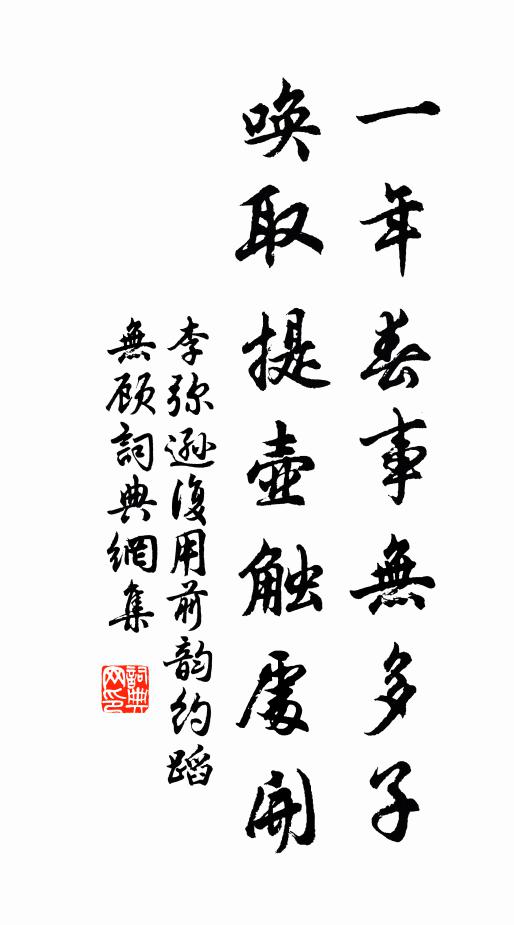 一年春事無多子
喚取提壺触處開
李弥遜復用前韵約蹈
無顾詞典網集
詞典網印